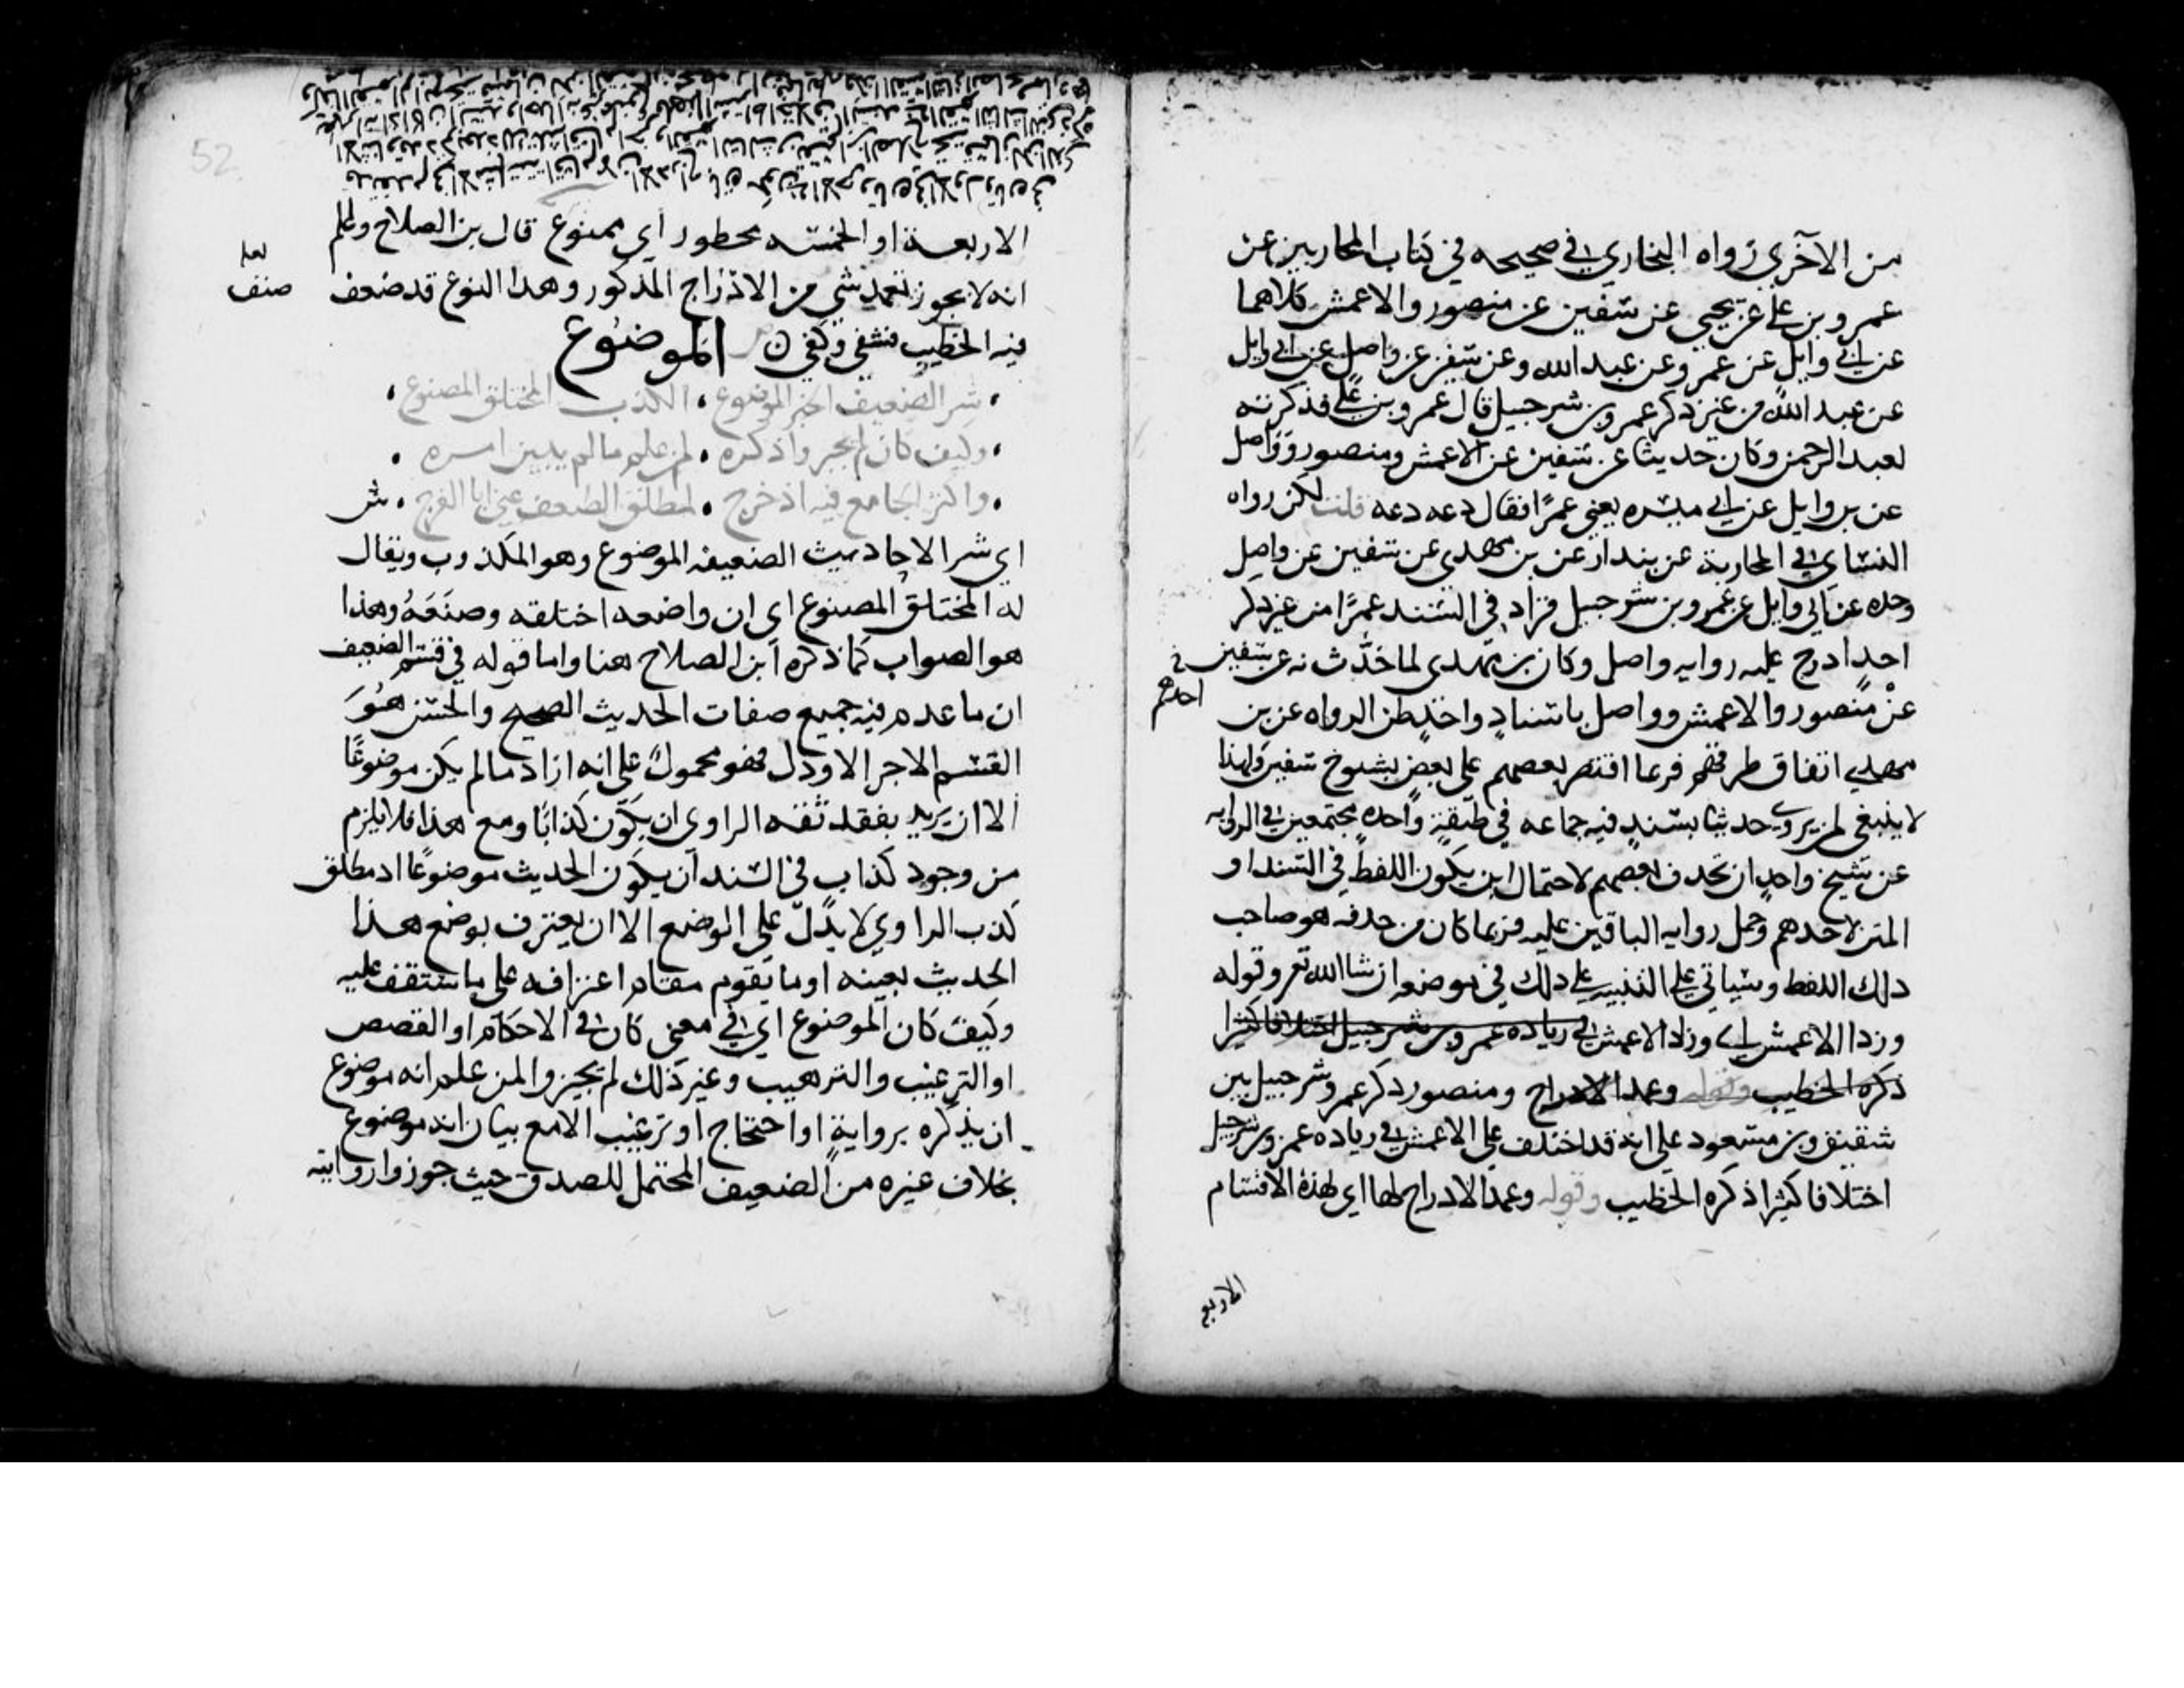 من الآخري رواه البخاري في صحيحه في كتاب المحاربين عن
عمرو بن علي عن يحيى عن سفين عن منصور والاعمش كلاهما
عن ابي وايل عن عمرو عن عبد الله وعن سفين عن واصل عن ابي وايل
عن عبد الله من غير ذكر عمرو بن شرحبيل قال عمرو بن علي فذكرته
لعبد الرحمن وكان حديثا عن سفين عن الاعمش ومنصور وواصل
عن بن وايل عن ابي ميسره يعني عمرًا فقال دعه دعه قلت لكن رواه
النساي في المحاربة عن بندار عن بن مهدي عن سفين عن واصل
وحده عن ابي وايل عن عمرو بن شرحبيل فزاد في السند عمرًا من غير ذكر
احد ادرج عليه روايه واصل وكان بن مهدي لما حدث به عن سفين
عن منصور والاعمش وواصل باسناد واحد ظن الرواه عن بن
احدهم
مهدي اتفاق طرقهم فربما اقتصر بعضهم على بعض شيوخ سفين ولهذا
لا ينبغي لمن يروي حديثا بسند فيه جماعه في طبقة واحده مجتمعين في الروايه
عن شيخ واحد ان يحذف بعضهم لاحتمال ان يكون اللفظ في السند او
المتن لاحدهم وحمل روايه الباقين عليه فربما كان من حذفه هو صاحب
ذلك اللفظ وسياتي التنبيه على ذلك في موضعه ان شا الله تع وقوله
وزدا الاعمش اي وزاد الاعمش في زياده عمرو بن شرحبيل اختلافا كثيرا
ذكره الخطيب وقوله وعمد الادراج ومنصور ذكر عمرو شرحبيل بين
شقيق وبن مسعود على انه قد اختلف على الاعمش في زياده عمرو بن شرحبيل
اختلافا كثيرا ذكره الخطيب وقوله وعمد الادراج لها اي لهذه الاقسام
الاربع
52
الاربعة او الخمسه محظور اي ممنوع قال بن الصلاح واعلم
انه لا يجوز تعمد شي من الادراج المذكور وهذا النوع قد ضعف
لعله
صنف
فيه الخطيب فشفي وكفي الموضوع
شر الضعيف الخبر الموضوع . الكذب المختلق المصنوع .
وكيف كان لم يجيزوا ذكره . لمن علم ما لم يبين امره .
واكثر الجامع فيه اذ خرج . لمطلق الضعف عني ابا الفرج . ش
اي شر الاحاديث الضعيفه الموضوع وهو المكذوب ويقال
له المختلق المصنوع اي ان واضعه اختلقه وصنعه وهذا
هو الصواب كما ذكره ابن الصلاح هنا واما قوله في قسم الضعيف
ان ما عدم فيه جميع صفات الحديث الصحيح والحسن هو
القسم الاخر الاردل فهو محمول على انه اراد ما لم يكن موضوعًا
الا ان يريد بفقد ثقه الراوي ان يكون كذابًا ومع هذا فلا يلزم
من وجود كذاب في السند ان يكون الحديث موضوعًا اذ مطلق
كذب الراوي لا يدل على الوضع الا ان يعترف بوضع هذا
الحديث بعينه او ما يقوم مقام اعترافه على ما ستقف عليه
وكيف كان الموضوع اي في اي معنى كان في الاحكام او القصص
او الترغيب والترهيب وغير ذلك لم يجيزوا لمن علم انه موضوع
ان يذكره برواية او احتجاج او ترغيب الا مع بيان انه موضوع
بخلاف غيره من الضعيف المحتمل للصدق حيث جوزوا روايته